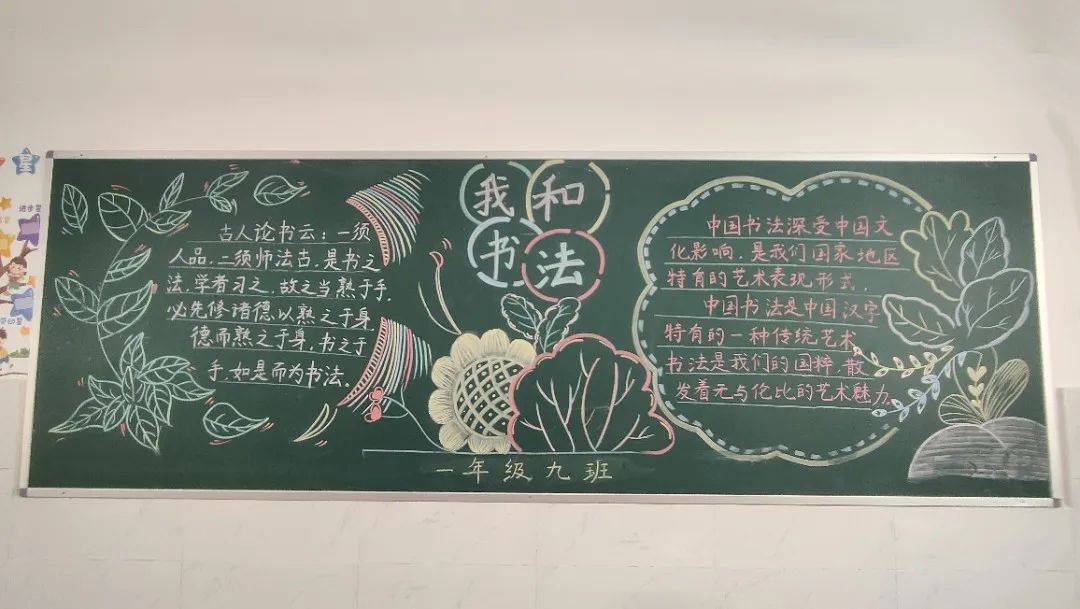 我和
书法
古人论书云：一须
人品，二须师法古，是书之
法，学者习之，故之当熟于手，
必先修诸德以熟之于身，
德而熟之于身，书之于
手，如是而为书法。
中国书法深受中国文
化影响，是我们国家地区
特有的艺术表现形式，
中国书法是中国汉字
特有的一种传统艺术，
书法是我们的国粹，散
发着无与伦比的艺术魅力
一年级九班
星
进步星